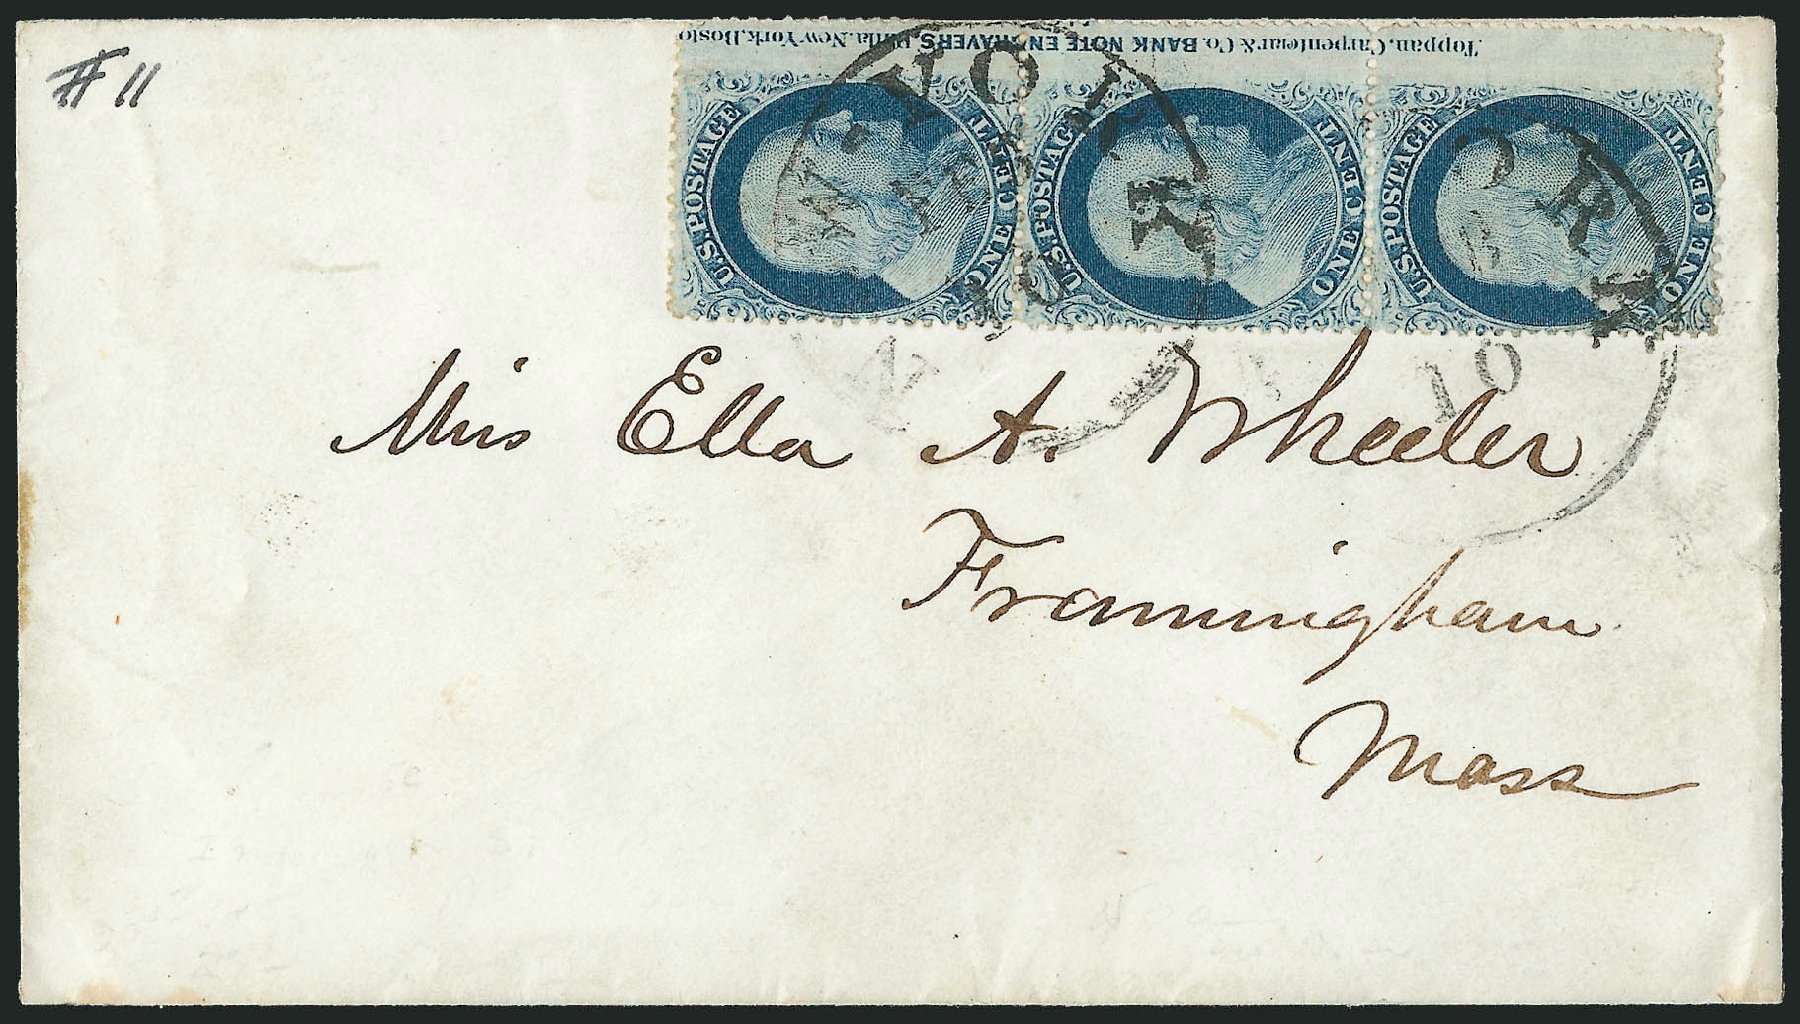 # 11
Toppan, Carpenter & Co. BANK NOTE ENGRAVERS Phila. New York, Bosto
U.S. POSTAGE
ONE CENT
U.S. POSTAGE
ONE CENT
U.S. POSTAGE
ONE CENT
W-YORK
10
ORK
10
Miss Ella A. Wheeler
Framingham
Mass